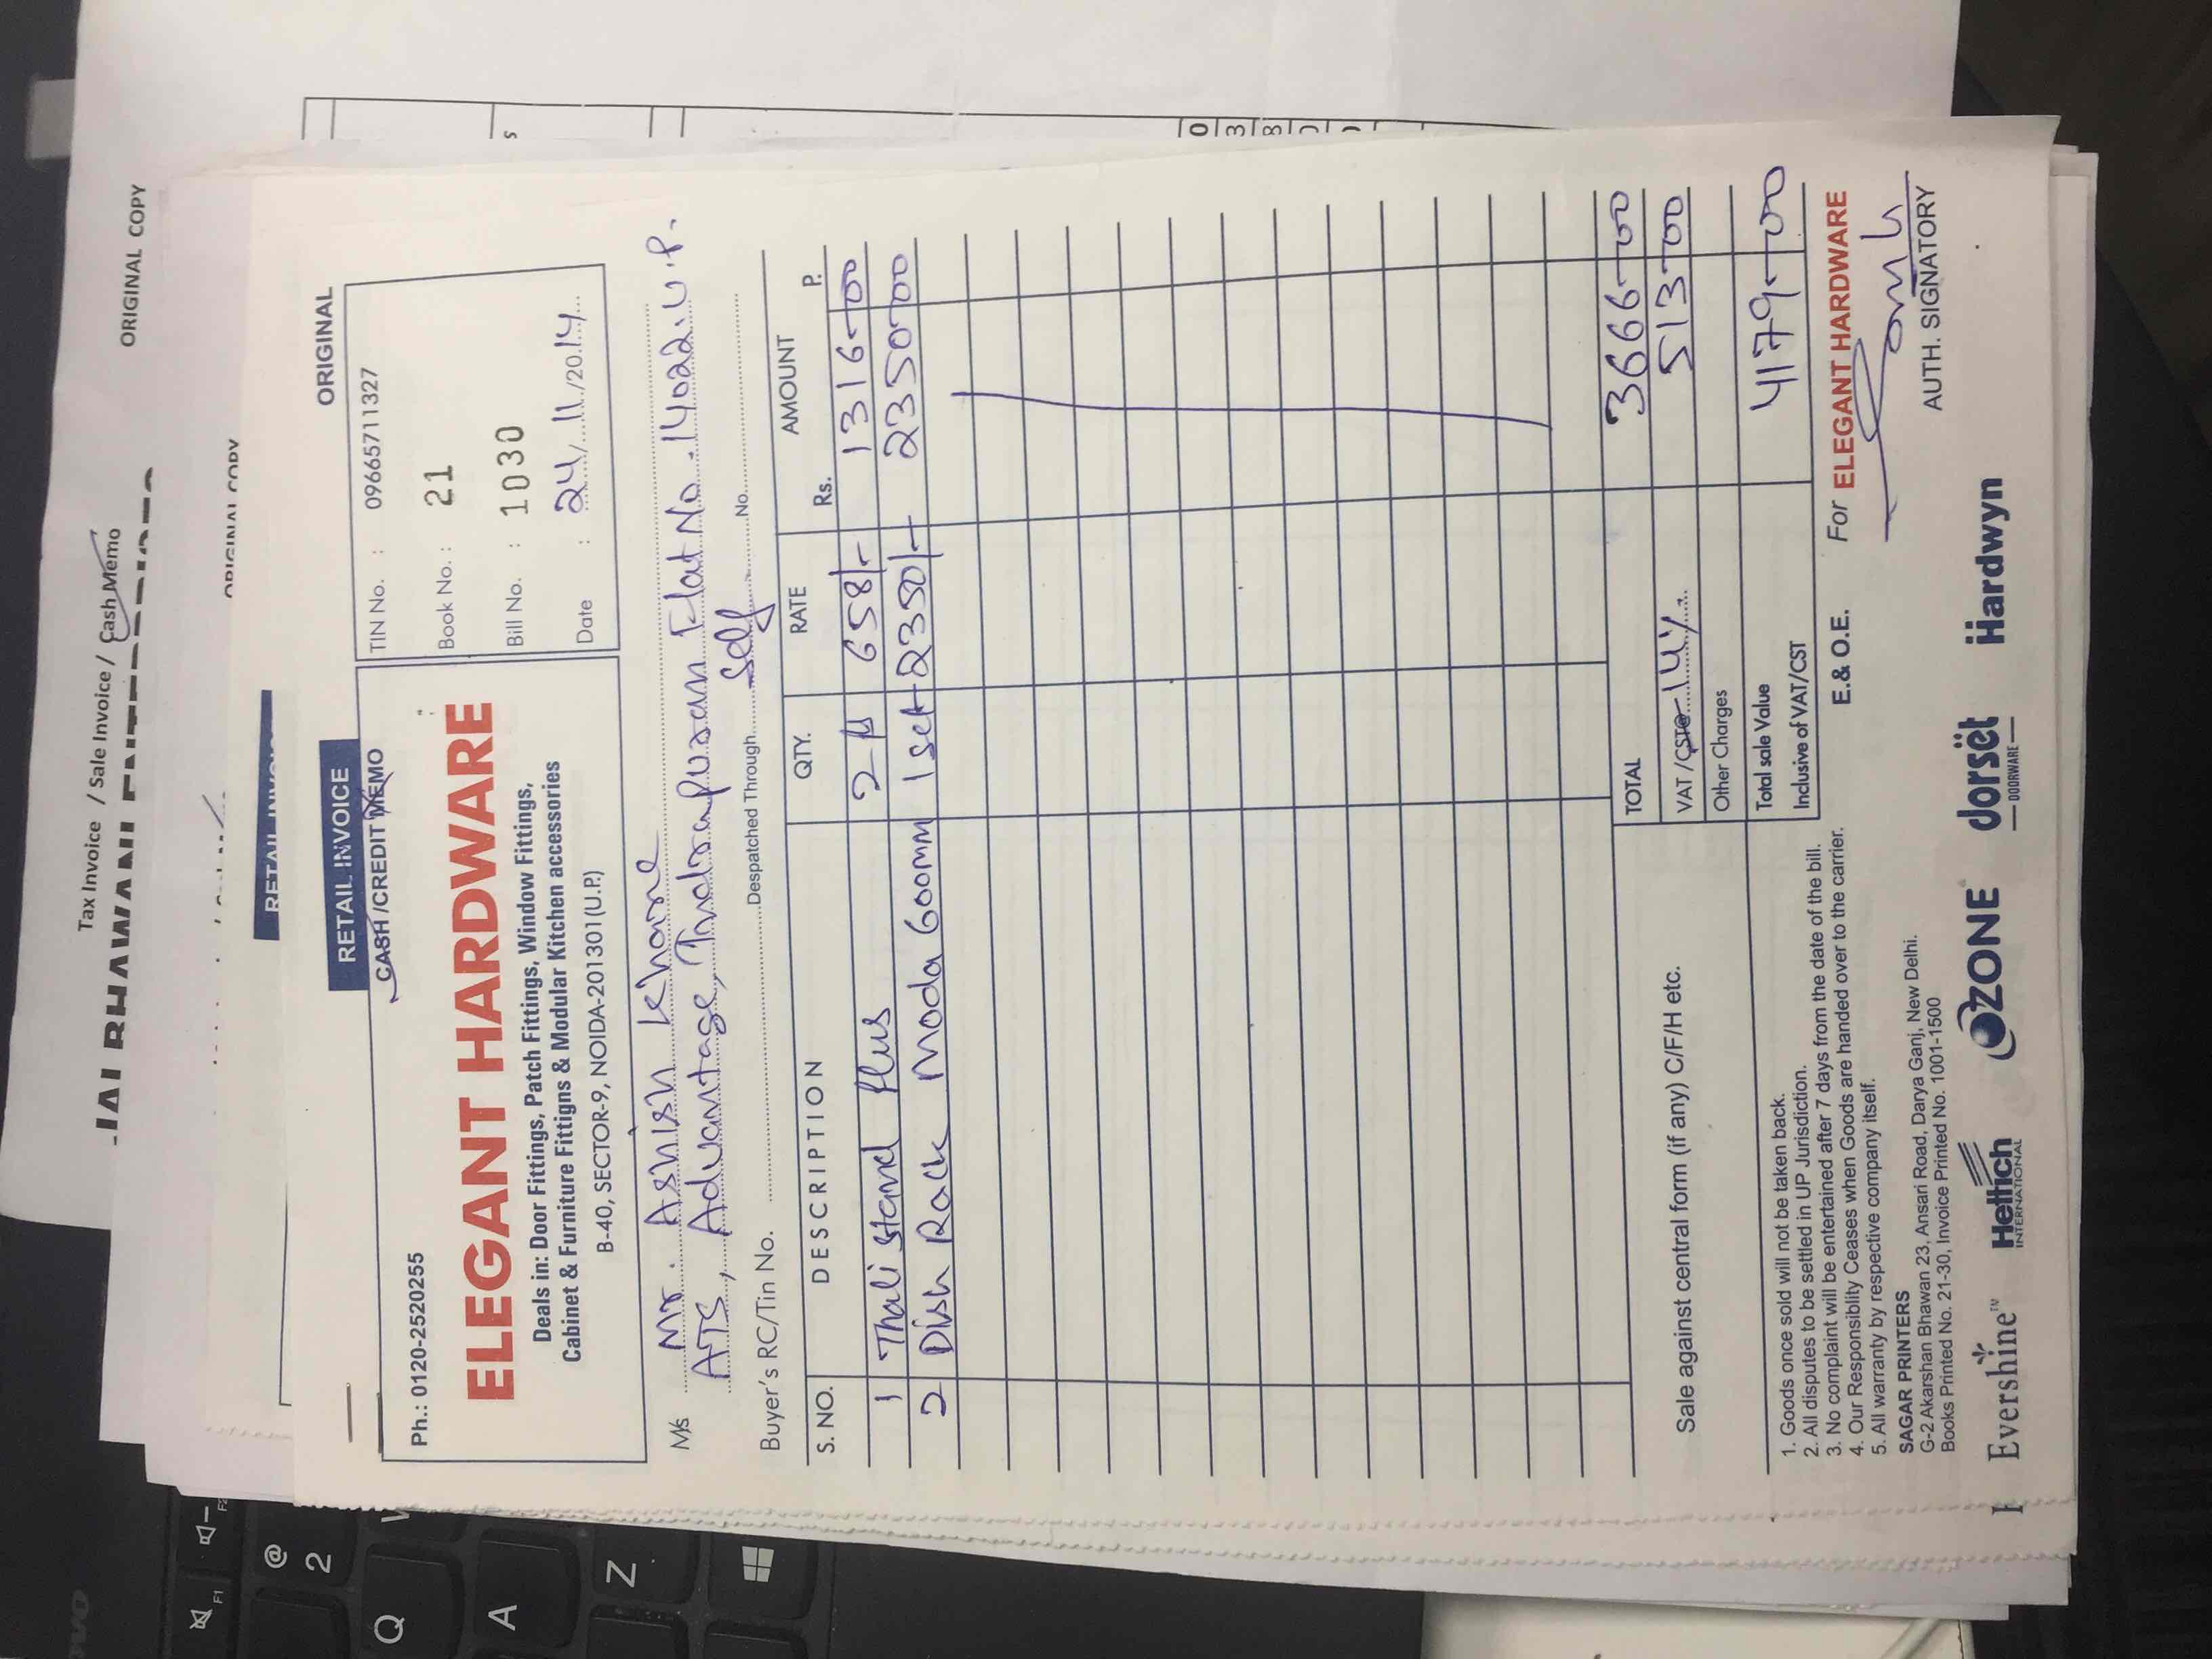 Tax Invoice / Sale Invoice / Cash Memo
JAI BHAWANI ENTERPRISES
ORIGINAL COPY
ORIGINAL COPY
RETAIL INVOICE
RETAIL INVOICE
ORIGINAL
CASH /CREDIT MEMO
TIN No. : 09665711327
Ph.: 0120-2520255
Book No. : 21
ELEGANT HARDWARE
Bill No. : 1030
Deals in: Door Fittings, Patch Fittings, Window Fittings,
Cabinet & Furniture Fittigns & Modular Kitchen accessories
Date : 24/11/2014
B-40, SECTOR-9, NOIDA-201301(U.P.)
M/s Mr. Ashish Khare
ATS, Advantage, Indrapuran Flat No. 14022. U.P.
Buyer's RC/Tin No. Despatched Through Self No.
S. NO. DESCRIPTION QTY. RATE AMOUNT
Rs. P.
1 Thali stand Plus 2 658/- 1316-00
2 Dish Rack Moda 600mm 1 set 2350/- 2350-00
TOTAL 3666-00
Sale against central form (if any) C/F/H etc.
VAT /CST@ 14% 513-00
Other Charges
Total sale Value
Inclusive of VAT/CST 4179-00
1. Goods once sold will not be taken back.
2. All disputes to be settled in UP Jurisdiction.
3. No complaint will be entertained after 7 days from the date of the bill.
4. Our Responsiblity Ceases when Goods are handed over to the carrier.
5. All warranty by respective company itself.
E.& O.E. For ELEGANT HARDWARE
AUTH. SIGNATORY
SAGAR PRINTERS
G-2 Akarshan Bhawan 23, Ansari Road, Darya Ganj, New Delhi.
Books Printed No. 21-30, Invoice Printed No. 1001-1500
Evershine™ Hettich INTERNATIONAL OZONE dorsët DOORWARE Hardwyn
F1
F2
@
2
Q
A
Z